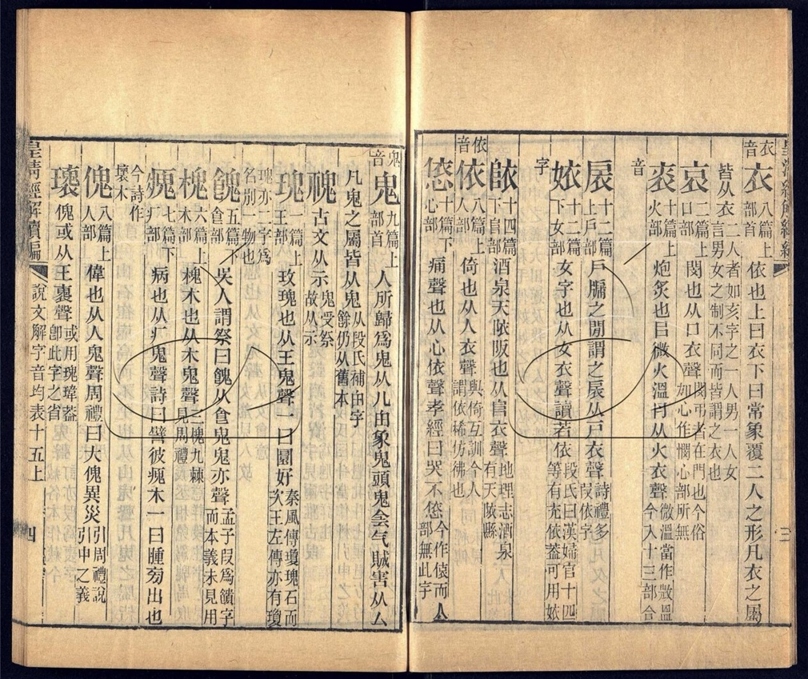 衣音 衣 八篇上部首 依也上曰衣下曰常象覆二人之形凡衣之屬
皆从衣 二人者如亥字之一人男一人女言男女之制不同而皆謂之衣也
哀 二篇上口部 閔也从口衣聲 閔弔者在門也今俗如心作憫心部所無
音 火部 炮炙也㠯微火溫肉从火衣聲 微溫當作㷫溫今入十三部合
十二篇上戶部 戶牖之閒謂之扆从戶衣聲 詩禮多叚依字
㛄 十二篇下女部 女字也从女衣聲讀若依 段氏曰漢婦官十四等有充依葢可用㛄
字
十四篇下𨸏部 酒泉天䧇阪也从𨸏衣聲 地理志酒泉有天䧇縣
依音 依 八篇上人部 倚也从人衣聲 與倚互訓今人謂依稀仿佛也
十篇下心部 痛聲也从心依聲孝經曰哭不㥋 今作偯而人部無此字
三
鬼音 鬼 九篇上部首 人所歸爲鬼从儿甶象鬼頭鬼侌气賊害从厶
凡鬼之屬皆从鬼 从段氏補甶字餘仍从舊本
䰡 古文从示 鬼受祭故从示
瑰 一篇上王部 玫瑰也从王鬼聲一曰圜好 秦風傳瓊瑰石而次王左傳亦有瓊
瑰亦二字爲名別一物也
餽 五篇下𠊊部 吳人謂祭曰餽从𠊊鬼鬼亦聲 孟子叚爲饋字而本義未見用
槐 六篇上木部 槐木也从木鬼聲 三槐九棘見周禮
瘣 七篇下疒部 病也从疒鬼聲詩曰譬彼瘣木一曰腫㫄出也
今詩作壞木
傀 八篇上人部 偉也从人鬼聲周禮曰大傀異災 引周禮說引申之義
瓌 傀或从王褱聲 或用瑰瑋葢卽此字之省
皇淸經解續編 說文解字音均表十五上 四